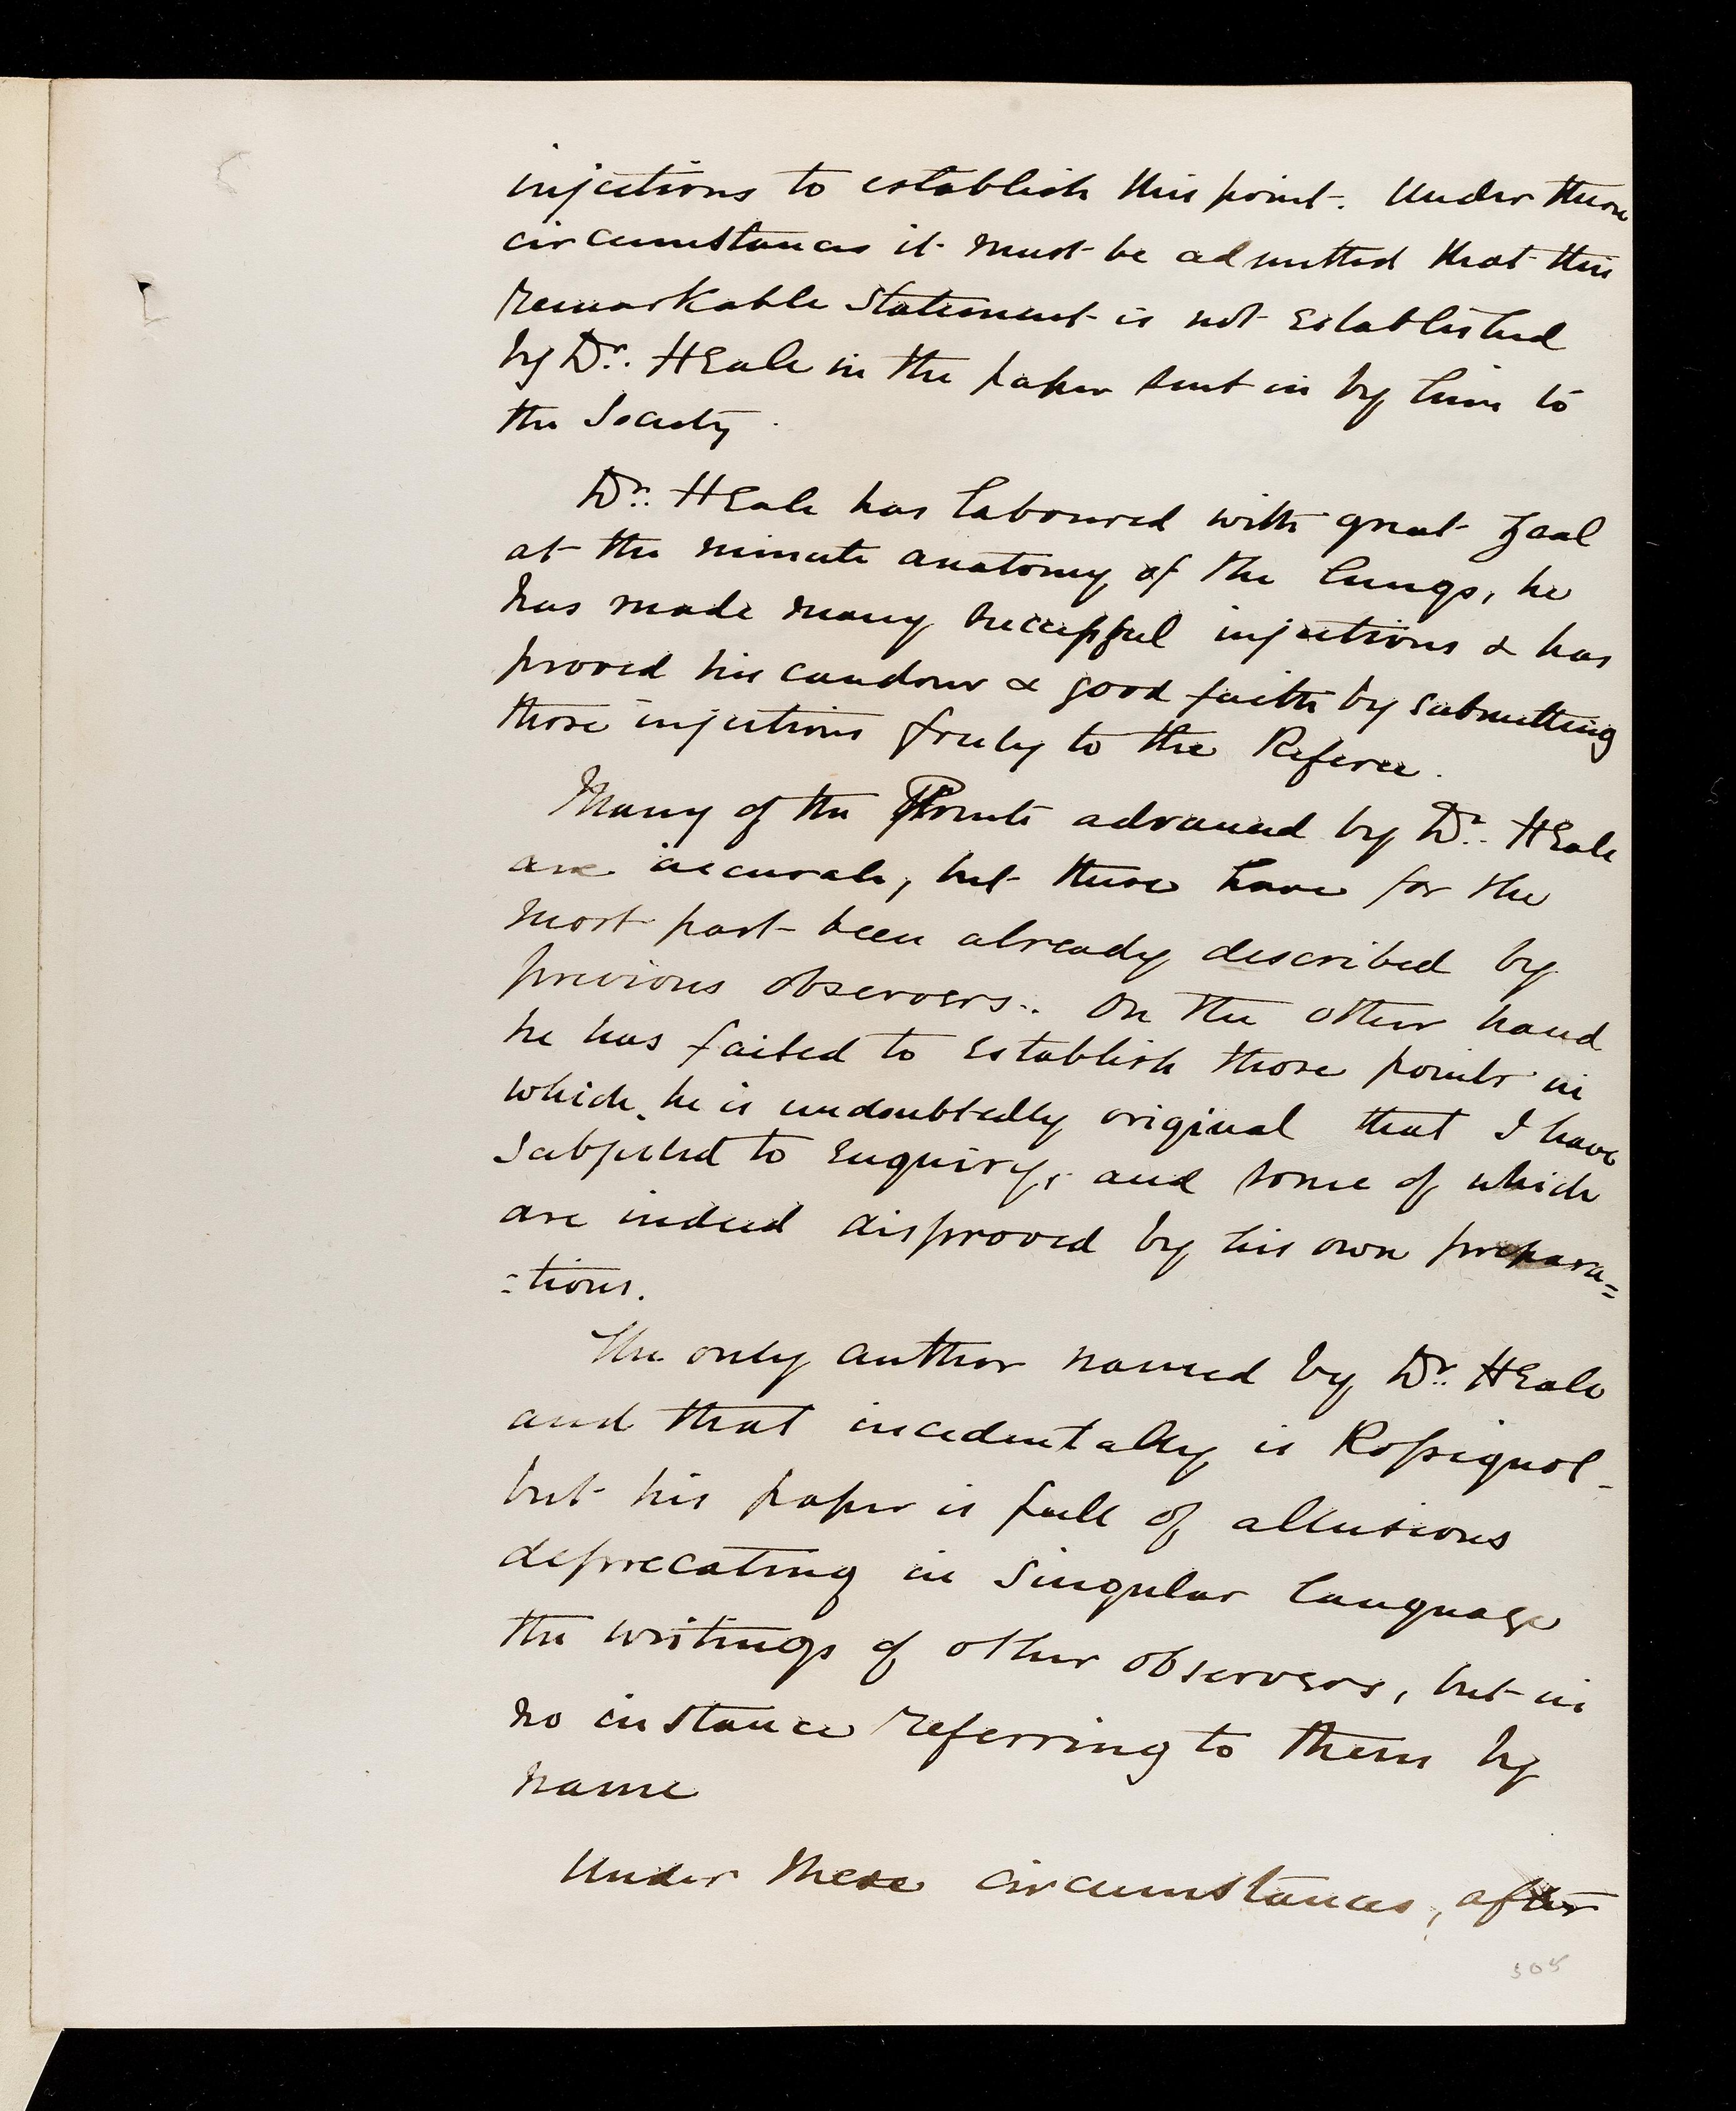 injections to establish this point. Under these
circumstances it must be admitted that this
remarkable statement is not established
by Dr. Heale in the paper sent in by him to
the Society.
Dr. Heale has laboured with great zeal
at the minute anatomy of the lungs, he
has made many successful injections & has
proved his candour & good faith by submitting
those injections freely to the Referee.
Many of the Points advanced by Dr. Heale
are accurate, but these have for the
most part been already described by
previous observers. On the other hand
he has failed to establish those points in
which he is undoubtedly original that I have
subjected to enquiry, and some of which
are indeed disproved by his own prepara=
=tions.
The only author named by Dr. Heale
and that incedentally is Rossignol -
but his paper is full of allusions
deprecating in singular language
the writings of other observers, but in
no instance referring to them by
name
Under these circumstances, after
305